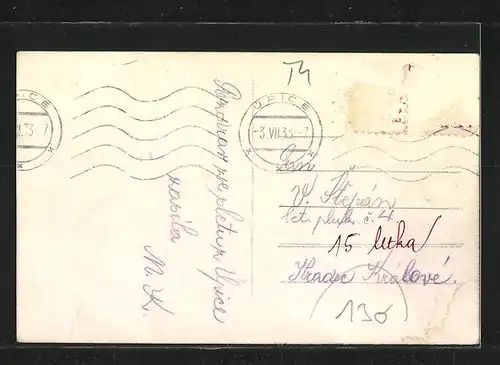 T4
ÚPICE
-3.VII.33.-7
Pozdrav ze pletur Úpice
zasílá
M. K.
V. Štěpán
let. pluk. č. 4.
15 letka
Hradec Králové.
130